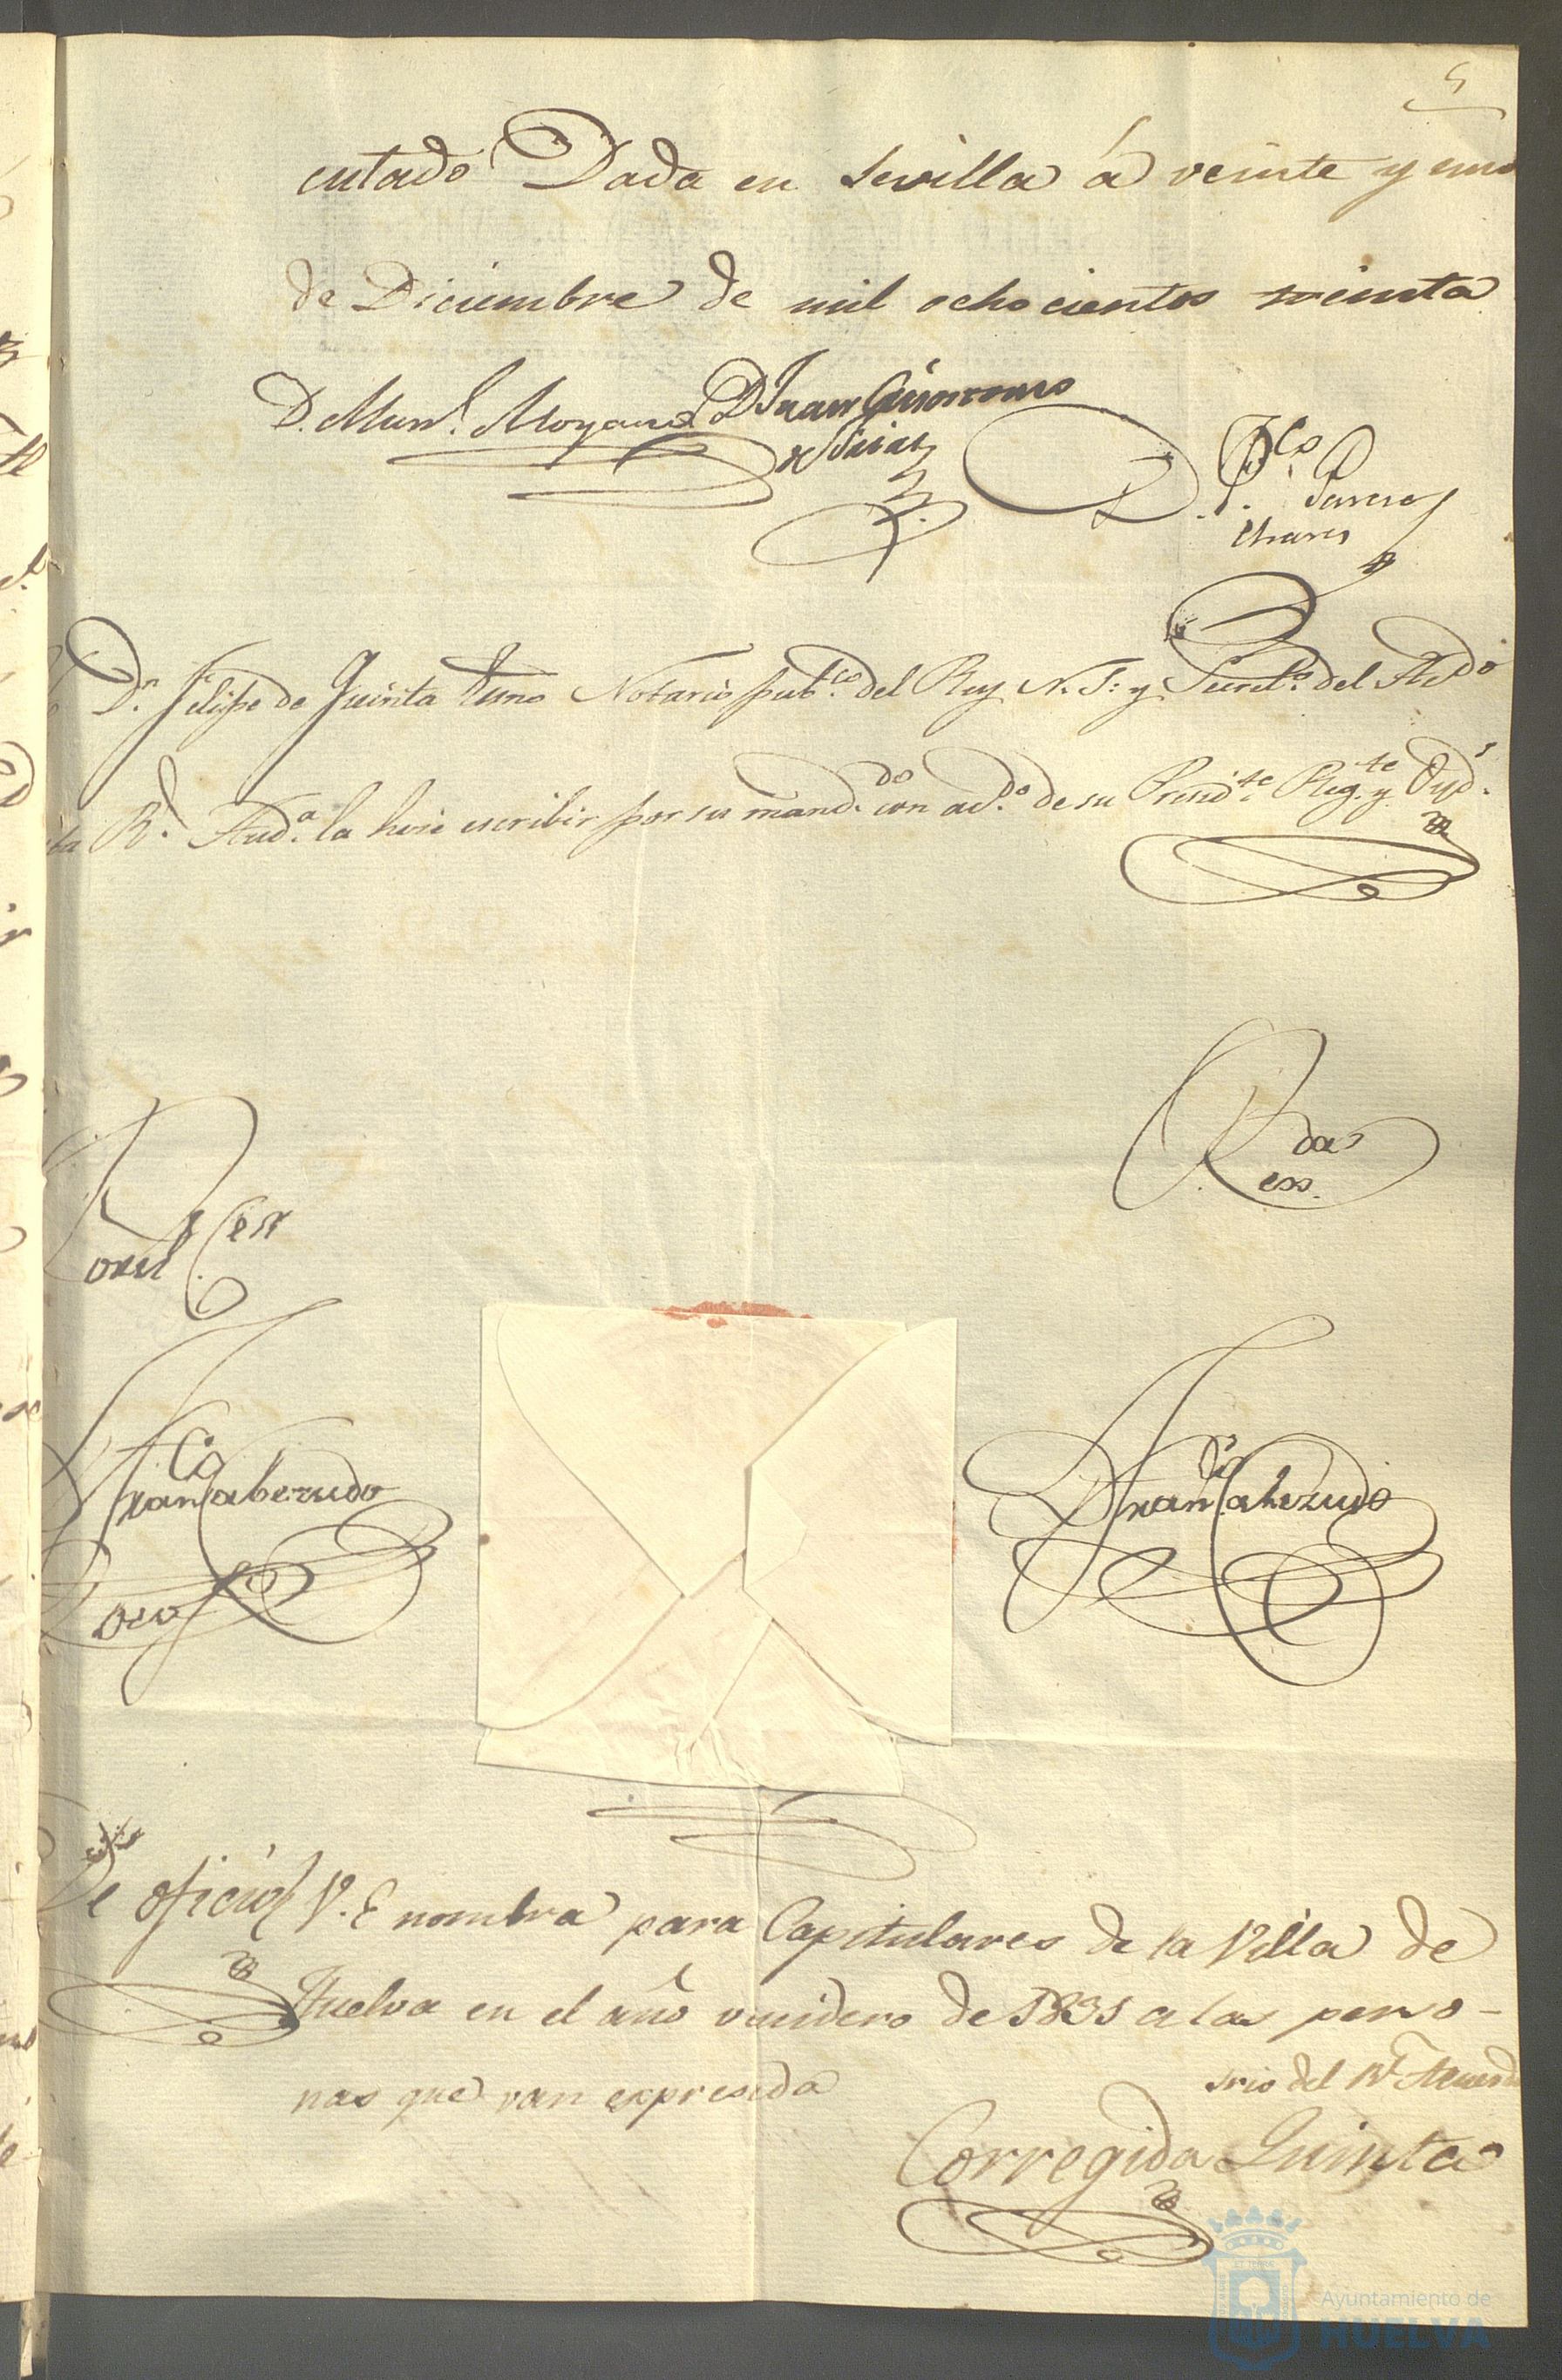 5
cutado Dada en Sevilla á veinte y uno
de Diciembre de mil ochocientos treinta
D. Man.l Moyano D Juan Geronimo
D. F.co P. Pareras
Chaves
D.n Felipe de Quinta Luno Notario pub.co del Rey N. S. y Secret.o del Acdo
R.l Aud.a la hice escribir por su mand.do con acd.o de su Presid.te Reg.te y Oyd.s
R da
ess.
Fran.co Caberudo
Fran.co Cabezudo
De oficio V. E nombra para Capitulares de la Villa de
Huelva en el año venidero de 1831 a las perso-
nas que van expresada
srio del R.l Acuerdo
Corregida Quinta
Ayuntamiento de
HUELVA